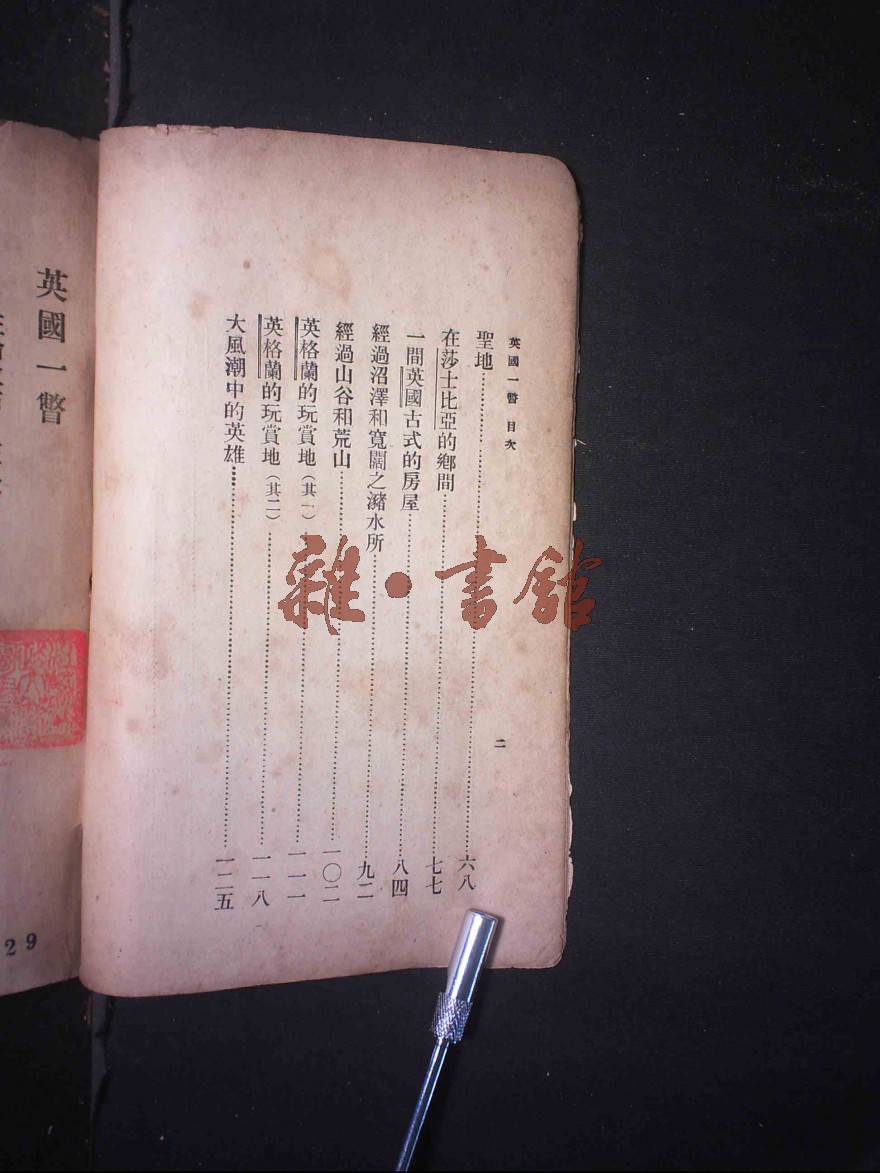 英國一瞥 目次
二
聖地……六八
在莎士比亞的鄉間……七七
一間英國古式的房屋……八四
經過沼澤和寬闊之瀦水所……九二
經過山谷和荒山……一〇二
英格蘭的玩賞地(其一)……一一一
英格蘭的玩賞地(其二)……一一八
大風潮中的英雄……一二五
英國一瞥
29
雜·書館